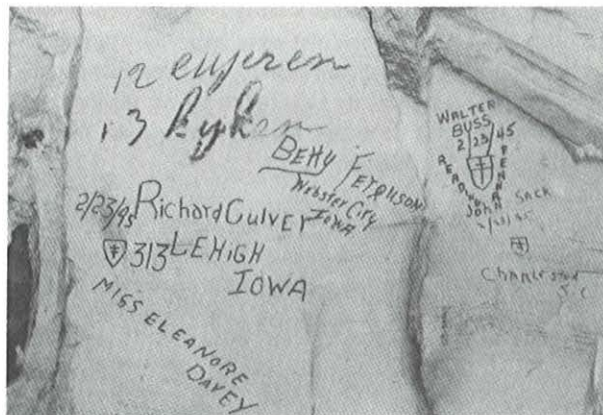 12
13 kyken
BETTY FERGUSON
Webster City
IOWA
2/23/45 Richard Culver
313 LEHIGH
IOWA
MISS ELEANORE
DAVEY
WALTER
BUSS
2/23/45
READING
PENNA
John SACK
Charleston
S.C.